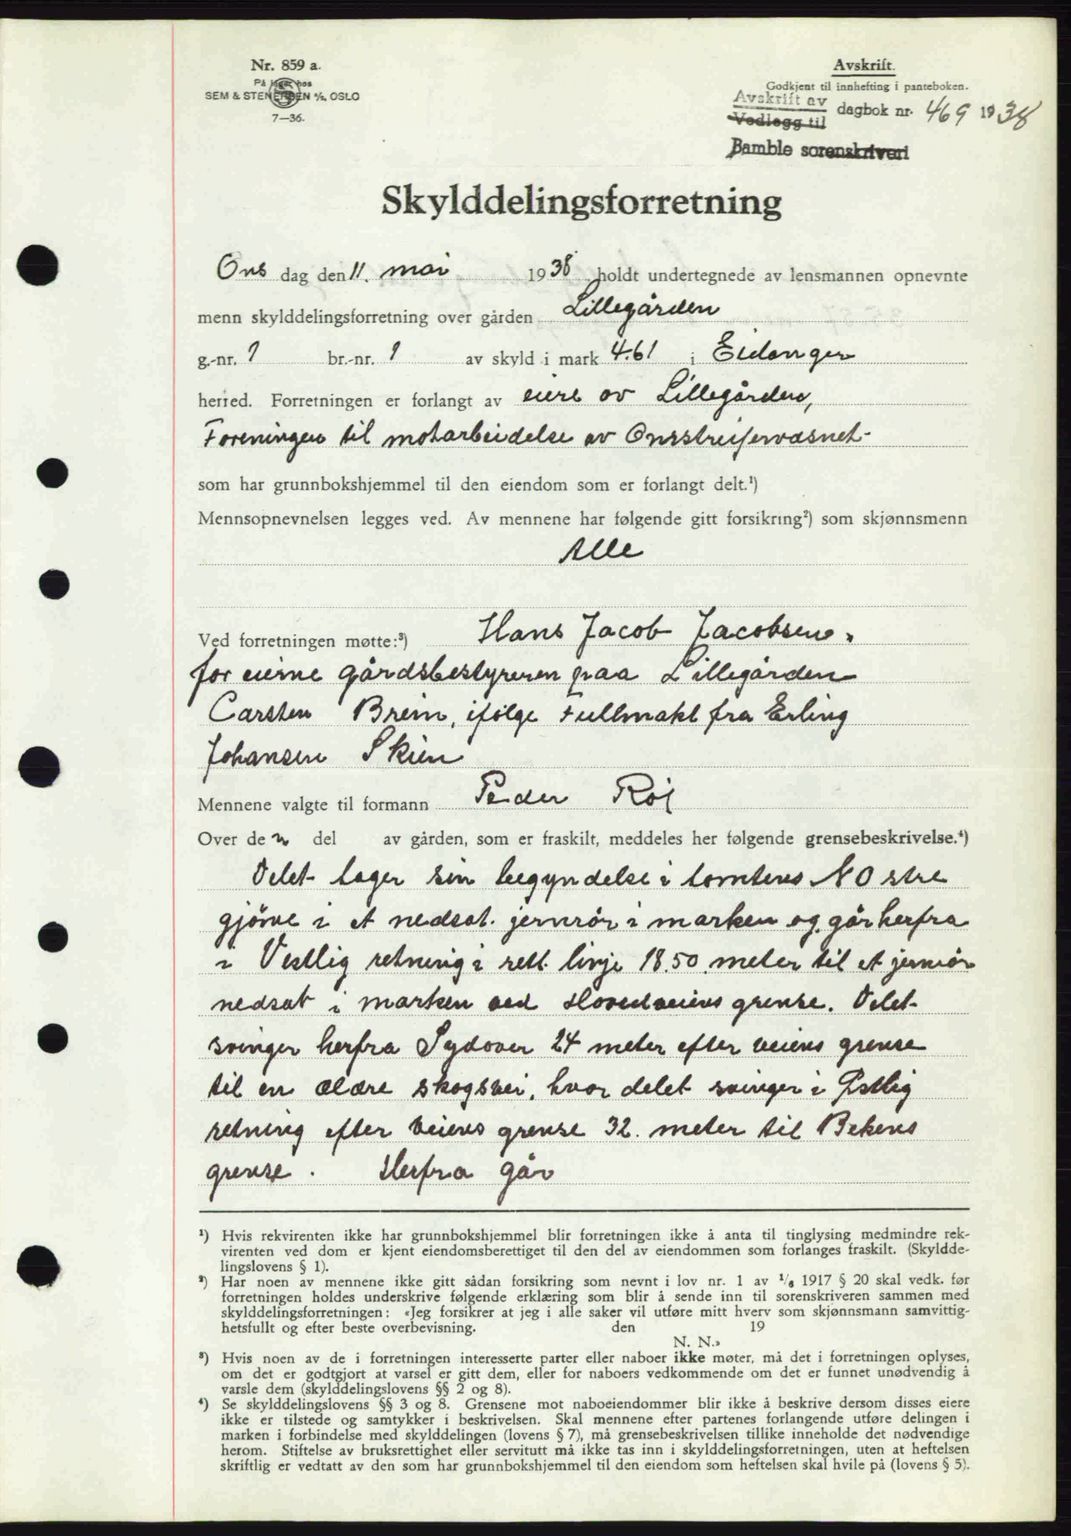 Nr. 859 a.
På lager hos
SEM & STENERSEN A/S, OSLO
7—36.
Avskrift.
Godkjent til innhefting i panteboken.
Avskrift av
Vedlegg til dagbok nr. 469 1938
Bamble sorenskriveri
Skylddelingsforretning
Ons dag den 11. mai 1938 holdt undertegnede av lensmannen opnevnte
menn skylddelingsforretning over gården Lillegården
g.-nr. 1 br.-nr. 1 av skyld i mark 4.61 i Eidanger
herred. Forretningen er forlangt av eiere av Lillegården,
Foreningen til motarbeidelse av Omstreifervæsnet.
som har grunnbokshjemmel til den eiendom som er forlangt delt.¹)
Mennsopnevnelsen legges ved. Av mennene har følgende gitt forsikring²) som skjønnsmenn
Alle
Ved forretningen møtte:³) Hans Jacob Jacobsen,
for eierne gårdsbestyreren paa Lillegården
Carsten Brein, ifølge Fullmakt fra Erling
Johansen Skien
Mennene valgte til formann Peder Røi
Over de n del av gården, som er fraskilt, meddeles her følgende grensebeskrivelse.⁴)
Delet tager sin begyndelse i tomtens NO stre
gjörne i et nedsat jernrör i marken og går herfra
i Vestlig retning i rett linje 18.50 meter til et jernrör
nedsat i marken ved Hovedveiens grense. Delet
svinger herfra Sydover 24 meter efter veiens grense
til en ældre skogsvei, hvor delet svinger i Östlig
retning efter veiens grense 32. meter til Bekens
grense. Herfra går
¹) Hvis rekvirenten ikke har grunnbokshjemmel blir forretningen ikke å anta til tinglysing medmindre rek-
virenten ved dom er kjent eiendomsberettiget til den del av eiendommen som forlanges fraskilt. (Skyldde-
lingslovens § 1).
²) Har noen av mennene ikke gitt sådan forsikring som nevnt i lov nr. 1 av 1/6 1917 § 20 skal vedk. før
forretningen holdes underskrive følgende erklæring som blir å sende inn til sorenskriveren sammen med
skylddelingsforretningen: «Jeg forsikrer at jeg i alle saker vil utføre mitt hverv som skjønnsmann samvittig-
hetsfullt og efter beste overbevisning. den 19
N. N.»
³) Hvis noen av de i forretningen interesserte parter eller naboer ikke møter, må det i forretningen oplyses,
om det er godtgjort at varsel er gitt dem, eller for naboers vedkommende om det er funnet unødvendig å
varsle dem (skylddelingslovens §§ 2 og 8).
⁴) Se skylddelingslovens §§ 3 og 8. Grensene mot naboeiendommer blir ikke å beskrive dersom disses eiere
ikke er tilstede og samtykker i beskrivelsen. Skal mennene efter partenes forlangende utføre delingen i
marken i forbindelse med skylddelingen (lovens § 7), må grensebeskrivelsen tillike inneholde det nødvendige
herom. Stiftelse av bruksrettighet eller servitutt må ikke tas inn i skylddelingsforretningen, uten at heftelsen
skriftlig er vedtatt av den som har grunnbokshjemmel til den eiendom som heftelsen skal hvile på (lovens § 5).